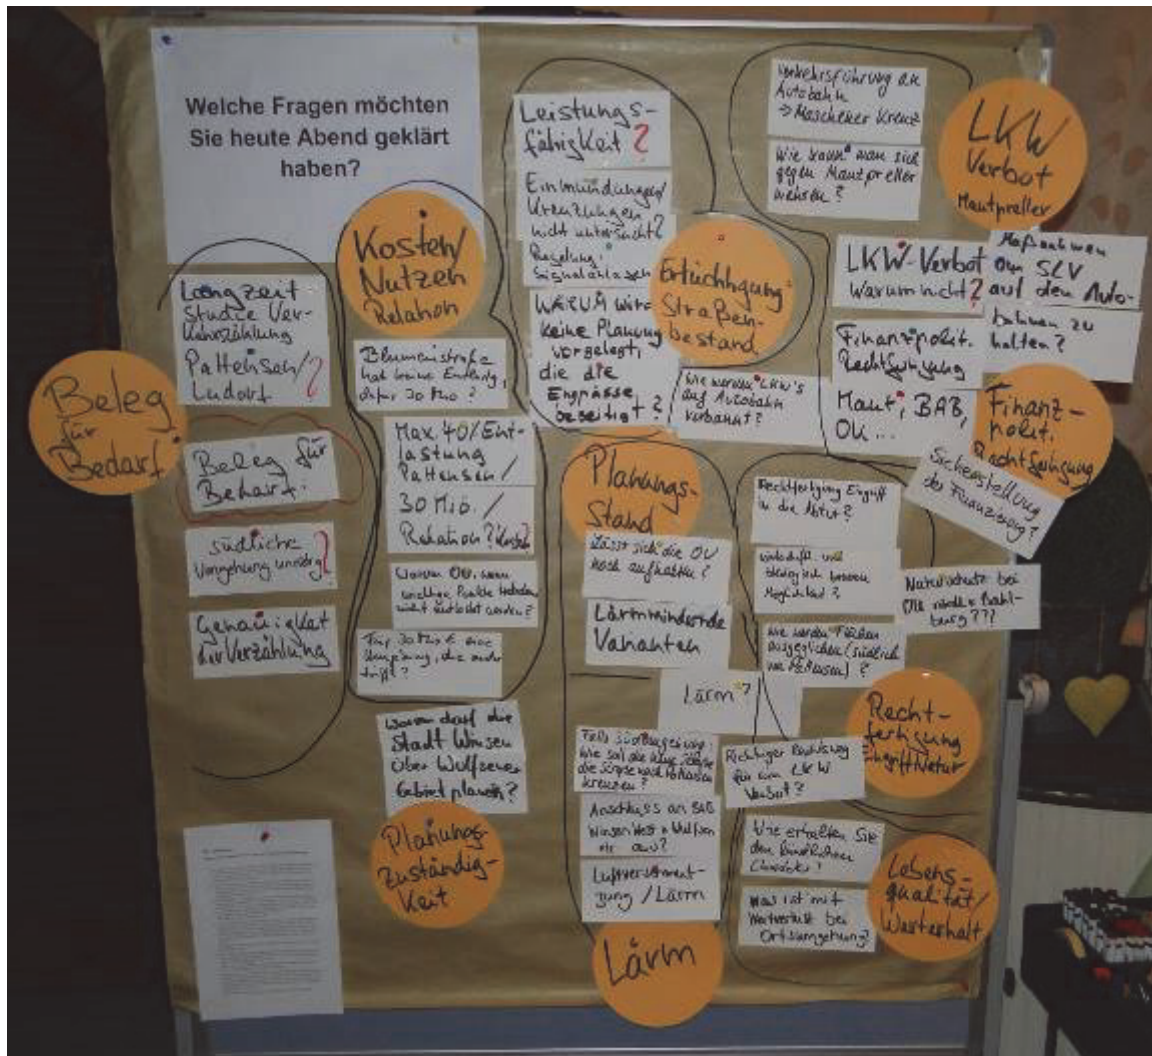 Welche Fragen möchten
Sie heute Abend geklärt
haben?
Beleg
für
Bedarf
Langzeit
Studie Ver-
kehrszählung
Pattensen/?
Ludorf
Beleg für
Bedarf.
südliche
Umgehung unnötig?
Genauigkeit
der Verzählung
Kosten/
Nutzen
Relation
Blumenstraße
hat keine Entlastg,
dafür 30 Mio?
Max. 40% Ent-
lastung
Pattensen/
30 Mio./
Relation? Kosten?
Warum OU, wenn
wichtige Punkte
nicht entlastet werden?
Für 30 Mio € eine
Umgehung, die
Warum darf die
Stadt Winsen
über Wulfsener
Gebiet planen?
Planungs-
zuständig-
keit
Leistungs-
fähigkeit?
Einmündungen/
Kreuzungen
nicht untersucht?
Regelung:
Signalanlagen
WARUM wird
keine Planung
vorgelegt,
die die
Engpässe
beseitigt?
Ertüchtigung
Straßen-
bestand
Wie werden LKW's
auf Autobahn
verbannt?
Planungs-
Stand
Lässt sich die OU
noch aufhalten?
Lärmmindernde
Varianten
Lärm?
Falls Südumgehung
wie soll die
die
kreuzen?
Anschluss an BAB
Winsen West + Wulfsen
Luftverschmut-
zung / Lärm
Lärm
Verkehrsführung an
Autobahn
→ Maschener Kreuz
Wie kann man sich
gegen Mautpreller
wehren?
LKW
Verbot
Mautpreller
LKW-Verbot
Warum nicht?
Maßnahmen
um SLV
auf den Auto-
bahnen zu
halten?
Finanzpolit.
Rechtfertigung
Maut, BAB,
OU...
Finanz-
polit.
Rechtfertigung
Sicherstellung
der Finanzierung?
Rechtfertigung Eingriff
in die Natur?
wirtschaftl. und
ökologisch bessere
Möglichkeit?
Naturschutz bei
OU nördl. Bahl-
burg???
Wie werden Flächen
ausgeglichen (südlich
von Pattensen)?
Recht-
fertigung
Eingriff Natur
Richtiger Rechtsweg
für ein LKW
Verbot?
Wie erhalten Sie
den
Was ist mit
Wertverlust bei
Ortsumgehung?
Lebens-
qualität/
Werterhalt